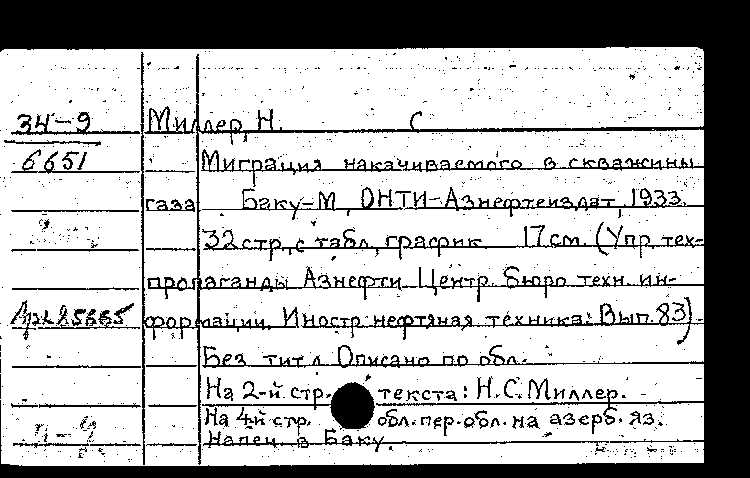 34-9 Миллер, Н. С
6651 Миграция накачиваемого в скважины
газа Баку-М, ОНТИ-Азнефтеиздат, 1933.
32 стр, с табл, график 17 см. (Упр. тех-
пропаганды Азнефти Центр. бюро техн. ин-
формации. Иностр нефтяная техника: Вып. 83).
Без тит л Описано по обл.
На 2-й стр. текста: Н.С. Миллер.
На 4й стр. обл. пер. обл. на азерб. яз.
Напеч. в Баку.